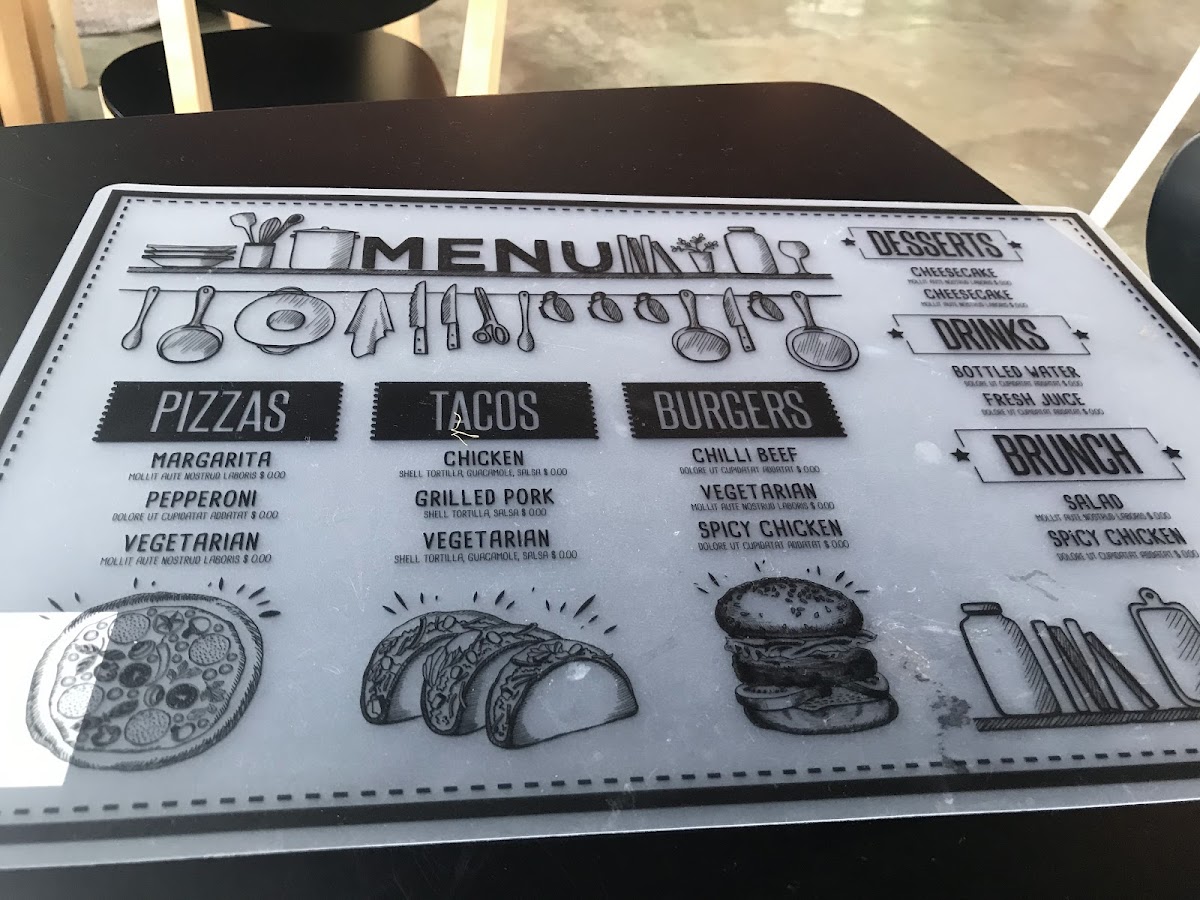 MENU
PIZZAS
MARGARITA
MOLLIT AUTE NOSTRUD LABORIS $ 0.00
PEPPERONI
DOLORE UT CUPIDATAT ADDATAT $ 0.00
VEGETARIAN
MOLLIT AUTE NOSTRUD LABORIS $ 0.00
TACOS
CHICKEN
SHELL TORTILLA, GUACAMOLE, SALSA $ 0.00
GRILLED PORK
SHELL TORTILLA, SALSA $ 0.00
VEGETARIAN
SHELL TORTILLA, GUACAMOLE, SALSA $ 0.00
BURGERS
CHILLI BEEF
DOLORE UT CUPIDATAT ADDATAT $ 0.00
VEGETARIAN
MOLLIT AUTE NOSTRUD LABORIS $ 0.00
SPICY CHICKEN
DOLORE UT CUPIDATAT ADDATAT $ 0.00
DESSERTS
CHEESECAKE
MOLLIT AUTE NOSTRUD LABORIS $ 0.00
CHEESECAKE
MOLLIT AUTE NOSTRUD LABORIS $ 0.00
DRINKS
BOTTLED WATER
DOLORE UT CUPIDATAT ADDATAT $ 0.00
FRESH JUICE
DOLORE UT CUPIDATAT ADDATAT $ 0.00
BRUNCH
SALAD
MOLLIT AUTE NOSTRUD LABORIS $ 0.00
SPICY CHICKEN
DOLORE UT CUPIDATAT ADDATAT $ 0.00